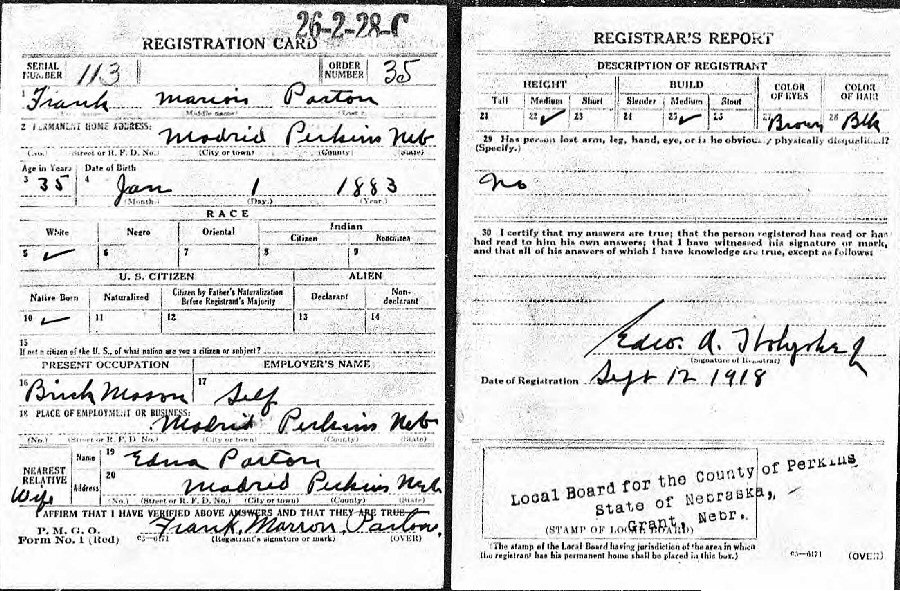 26-2-28-C
REGISTRATION CARD
SERIAL NUMBER 113 ORDER NUMBER 35
1 Frank Marion Parton
(First name) (Middle name) (Last)
2 PERMANENT HOME ADDRESS: Madrid Perkins Neb
(No.) (Street or R. F. D. No.) (City or town) (County) (State)
Age in Years Date of Birth
3 35 4 Jan 1 1883
(Month.) (Day.) (Year.)
RACE
White Negro Oriental Indian
Citizen Noncitizen
5 ✓ 6 7 8 9
U. S. CITIZEN ALIEN
Native Born Naturalized Citizen by Father's Naturalization Before Registrant's Majority Declarant Non-declarant
10 ✓ 11 12 13 14
15
If not a citizen of the U. S., of what nation are you a citizen or subject?
PRESENT OCCUPATION EMPLOYER'S NAME
16 Brick Mason 17 Self
18 PLACE OF EMPLOYMENT OR BUSINESS: Madrid Perkins Neb
(No.) (Street or R. F. D. No.) (City or town) (County) (State)
NEAREST RELATIVE Name 19 Edna Parton
Wife Address 20 Madrid Perkins Neb
(No.) (Street or R. F. D. No.) (City or town) (County) (State)
I AFFIRM THAT I HAVE VERIFIED ABOVE ANSWERS AND THAT THEY ARE TRUE
P. M. G. O.
Form No. 1 (Red) 03-6171 Frank, Marron Parton.
(Registrant's signature or mark) (OVER)
REGISTRAR'S REPORT
DESCRIPTION OF REGISTRANT
HEIGHT BUILD COLOR OF EYES COLOR OF HAIR
Tall Medium Short Slender Medium Stout
21 22 ✓ 23 24 25 ✓ 26 27 Brown 28 Blk
29 Has person lost arm, leg, hand, eye, or is he obviously physically disqualified?
(Specify.)
No
30 I certify that my answers are true; that the person registered has read or has
had read to him his own answers; that I have witnessed his signature or mark,
and that all of his answers of which I have knowledge are true, except as follows:
A.
(Signature of Registrar)
Date of Registration Sept 12 1918
Local Board for the County of Perkins
State of Nebraska,
Grant, Nebr.
(STAMP OF LOCAL BOARD)
(The stamp of the Local Board having jurisdiction of the area in which
the registrant has his permanent home shall be placed in this box.)
03-6171 (OVER)